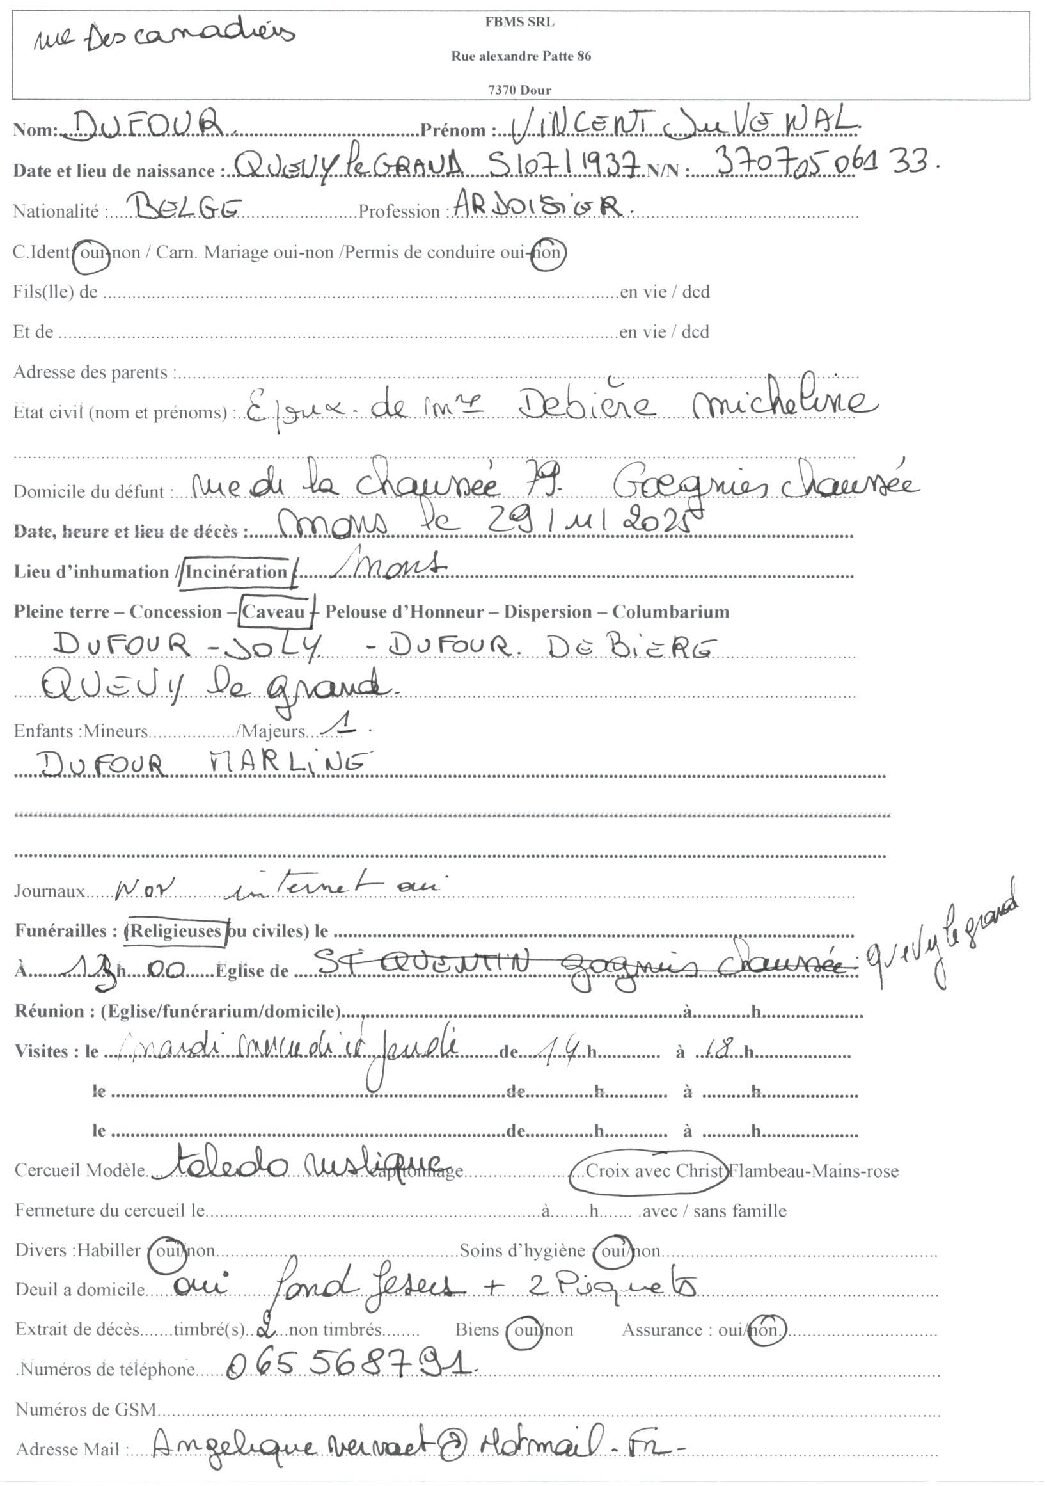 rue Des canadiens
FBMS SRL
Rue alexandre Patte 86
7370 Dour
Nom: DUFOUR Prénom : VINCENT JuVENAL
Date et lieu de naissance : QUEVY le GRAND 5/07/1937 N/N : 370705 061 33.
Nationalité : BELGE Profession : ARDOISIER.
C.Ident oui-non / Carn. Mariage oui-non /Permis de conduire oui-non
Fils(lle) de en vie / dcd
Et de en vie / dcd
Adresse des parents :
Etat civil (nom et prénoms) : Epoux de Mme Debière Micheline
Domicile du défunt : rue de la chaussée 79. Goegnies chaussée
Date, heure et lieu de décès : mons le 29/11/2025
Lieu d'inhumation /Incinération/ Mons
Pleine terre – Concession – Caveau – Pelouse d'Honneur – Dispersion – Columbarium
DUFOUR - JOLY - DUFOUR. DEBIERE
QUEVY le grand.
Enfants :Mineurs /Majeurs 1
DUFOUR MARLINE
Journaux Non internet oui
Funérailles : (Religieuses ou civiles) le
À 13 h 00 Eglise de St QUENTIN gognies chaussée quevy le grand
Réunion : (Eglise/funérarium/domicile) à h
Visites : le mardi mercredi et jeudi de 14 h à 18 h
le de h à h
le de h à h
Cercueil Modèle toledo rustique capitonnage Croix avec Christ Flambeau-Mains-rose
Fermeture du cercueil le à h avec / sans famille
Divers :Habiller oui/non Soins d'hygiène : oui/non
Deuil a domicile oui fond Jesus + 2 Piquets
Extrait de décès timbré(s) 2 non timbrés Biens oui/non Assurance : oui/non
.Numéros de téléphone 065 568791.
Numéros de GSM
Adresse Mail : Angelique vervaet@Hotmail.Fr-